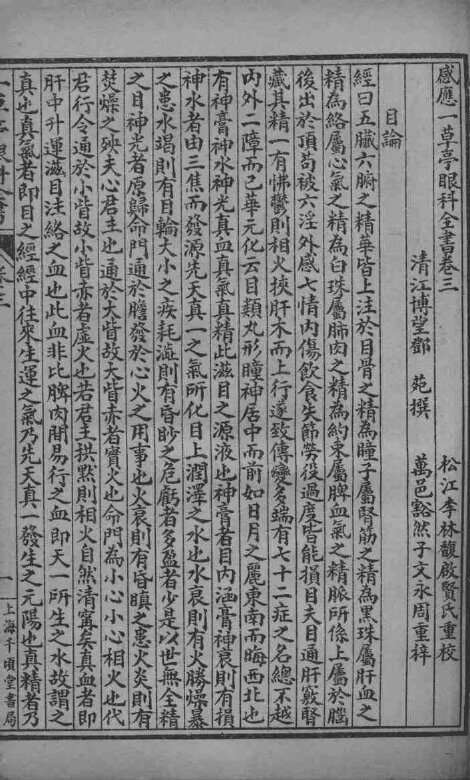 感應一草亭眼科全書卷三　松江李林馥啟賢氏重校
清江博堂鄧　苑撰　萬邑豁然子文永周重梓
目論
經曰五臟六腑之精華皆上注於目骨之精為瞳子屬腎筋之精為黑珠屬肝血之
精為絡屬心氣之精為白珠屬肺肉之精為約束屬脾血氣之精脈所係上屬於腦
後出於頂茍被六淫外感七情內傷飲食失節勞役過度皆能損目夫目通肝竅腎
藏其精一有怫鬱則相火挾肝木而上行遂致傳變多端有七十二症之名總不越
內外二障而已華元化云目類丸形瞳神居中而前如日月之麗東南而晦西北也
有神膏神水神光真血真氣真精此滋目之源液也神膏者目內涵膏神衰則有損
神水者由三焦而發源先天真一之氣所化目上潤澤之水也水衰則有火勝燥暴
之患水竭則有目輪大小之疾耗澁則有昏眇之危虧者多盈者少是以世無全精
之目神光者原歸命門通於膽發於心火之用事也火衰則有昏瞑之患火炎則有
焚燥之殃夫心君主也通於大眥故大眥赤者實火也命門為小心小心相火也代
君行令通於小眥故小眥赤者虛火也若君主拱默則相火自然清寧矣真血者即
肝中升運滋目注絡之血也此血非比脾肉間易行之血即天一所生之水故謂之
真也真氣者即目之經經中往來生運之氣乃先天真一發生之元陽也真精者乃
卷三　一　上海千頃堂書局